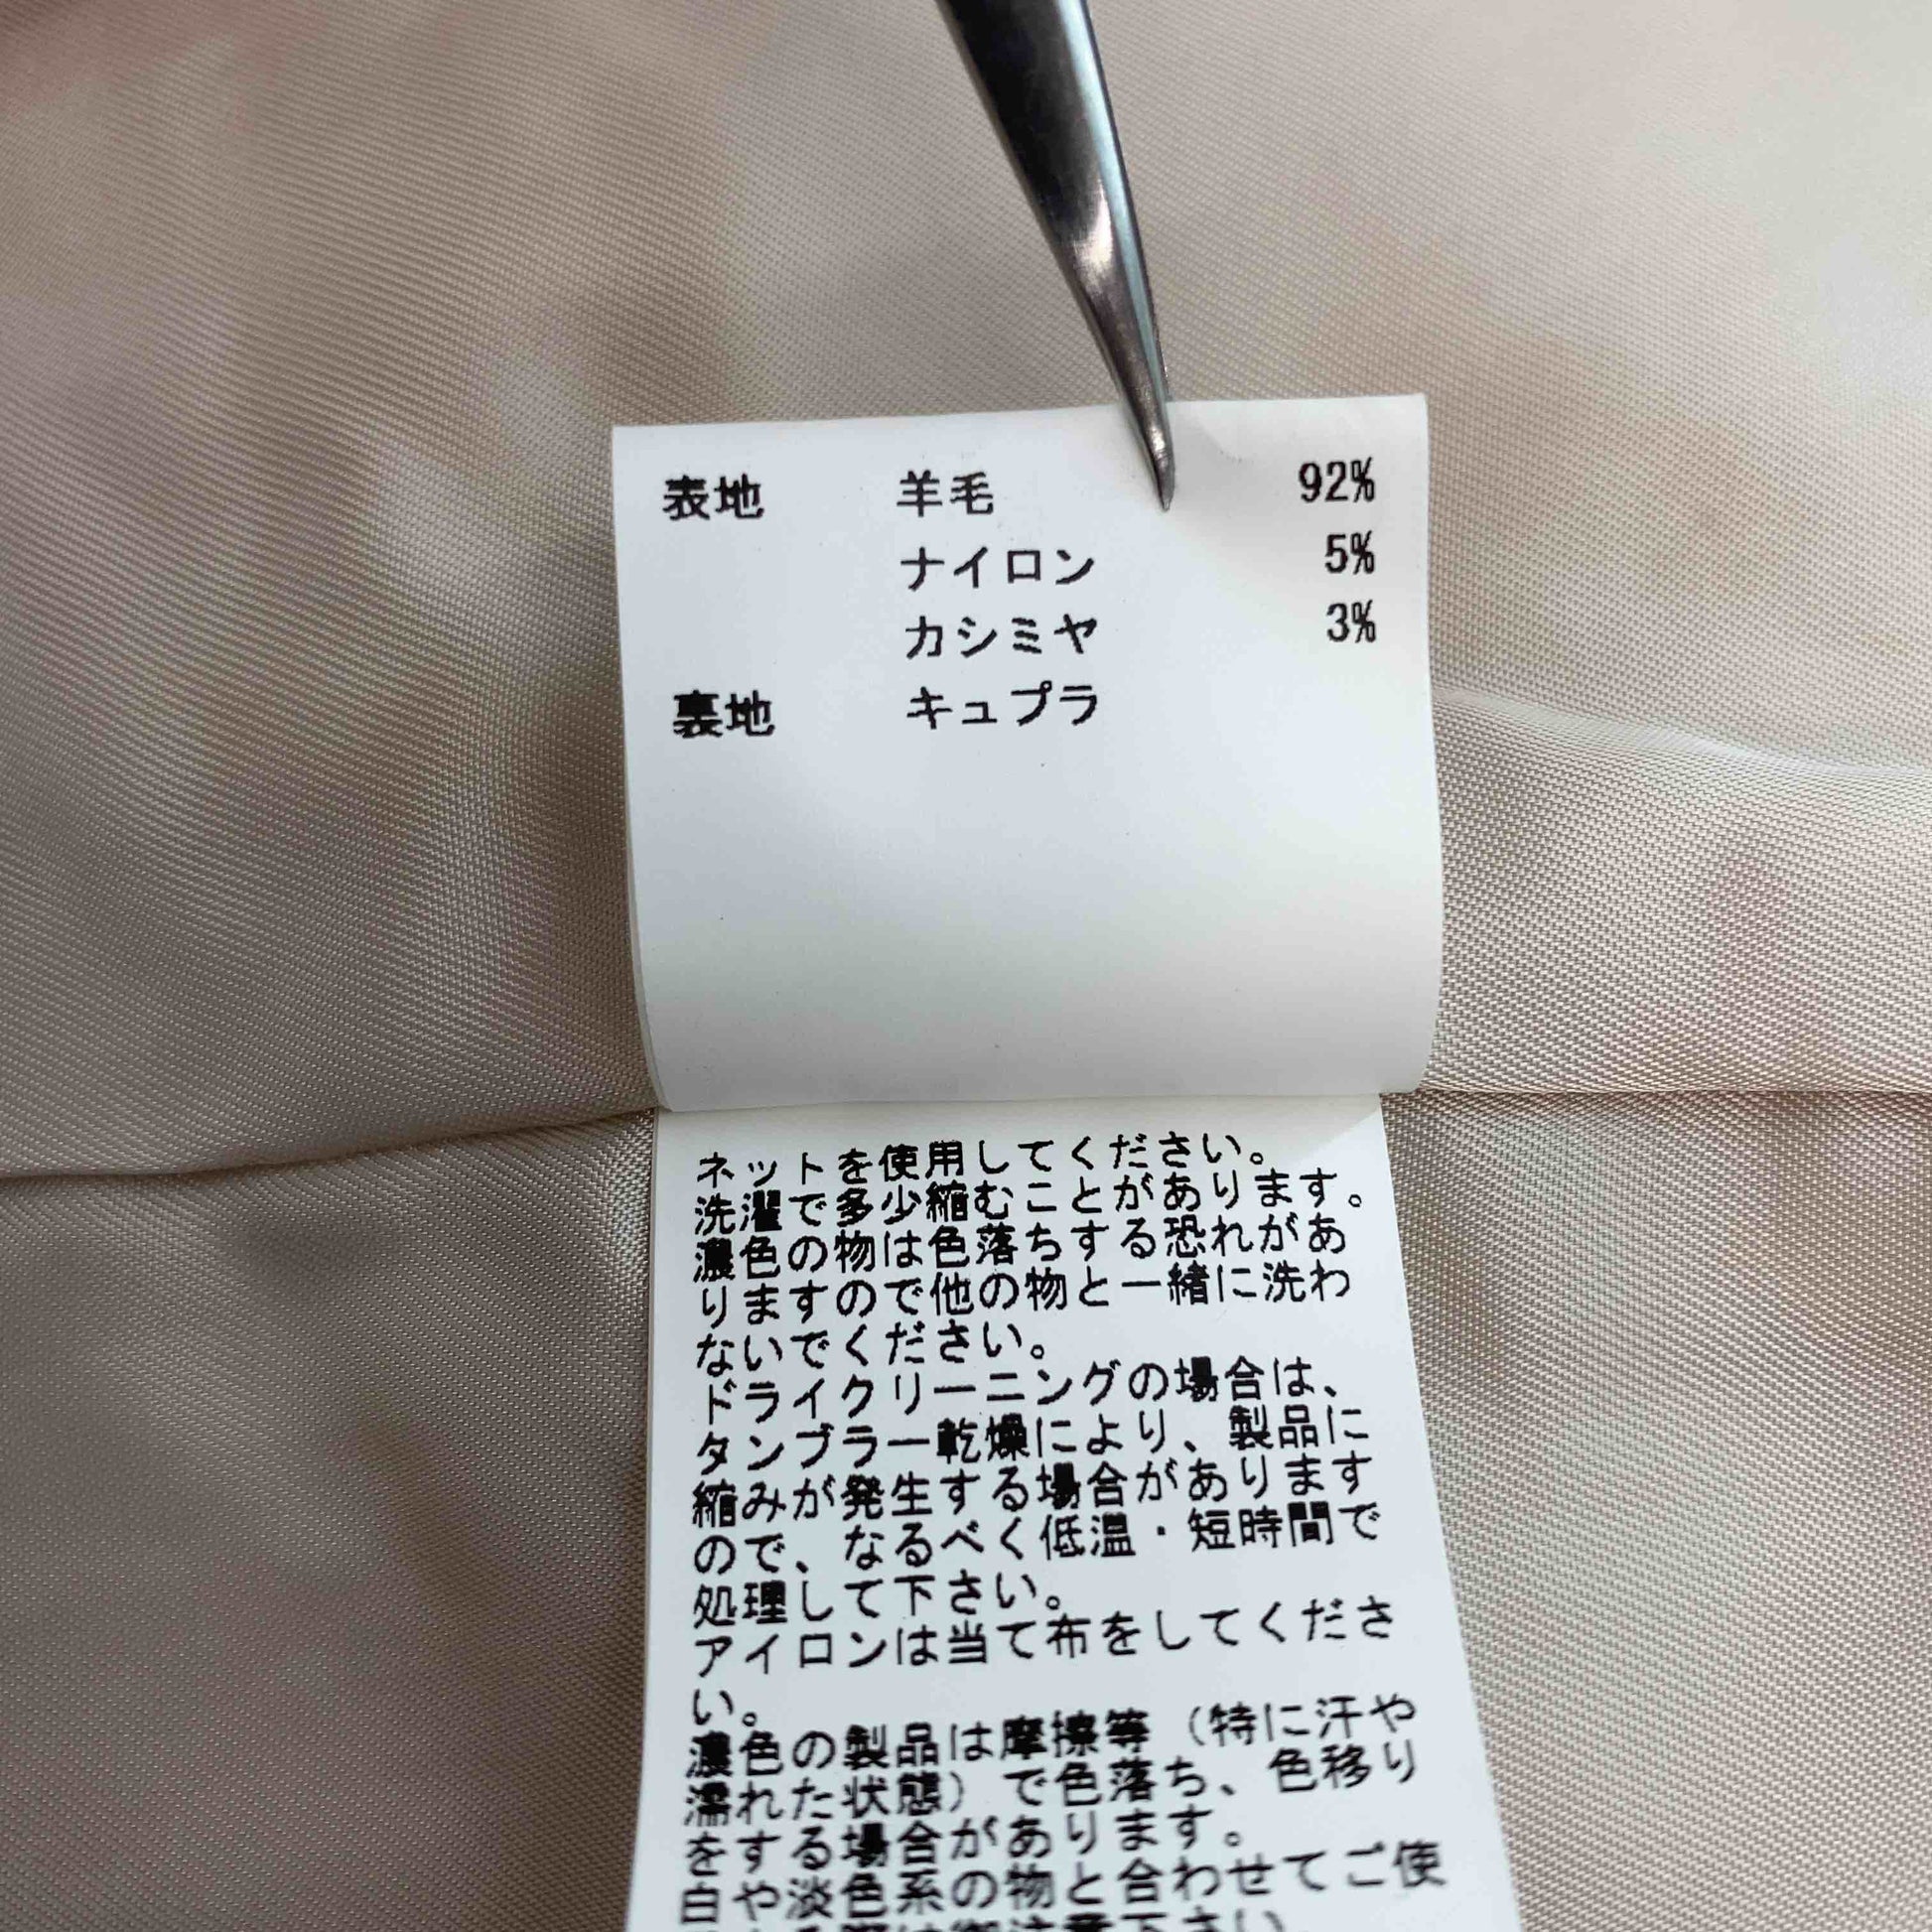 表地 羊毛 92%
ナイロン 5%
カシミヤ 3%
裏地 キュプラ
ネットを使用してください。
洗濯で多少縮むことがあります。
濃色の物は色落ちする恐れがあ
りますので他の物と一緒に洗わ
ないでください。
ドライクリーニングの場合は、
タンブラー乾燥により、製品に
縮みが発生する場合があります
ので、なるべく低温・短時間で
処理して下さい。
アイロンは当て布をしてくださ
い。
濃色の製品は摩擦等（特に汗や
濡れた状態）で色落ち、色移り
をする場合があります。
白や淡色系の物と合わせてご使
注意下さい。